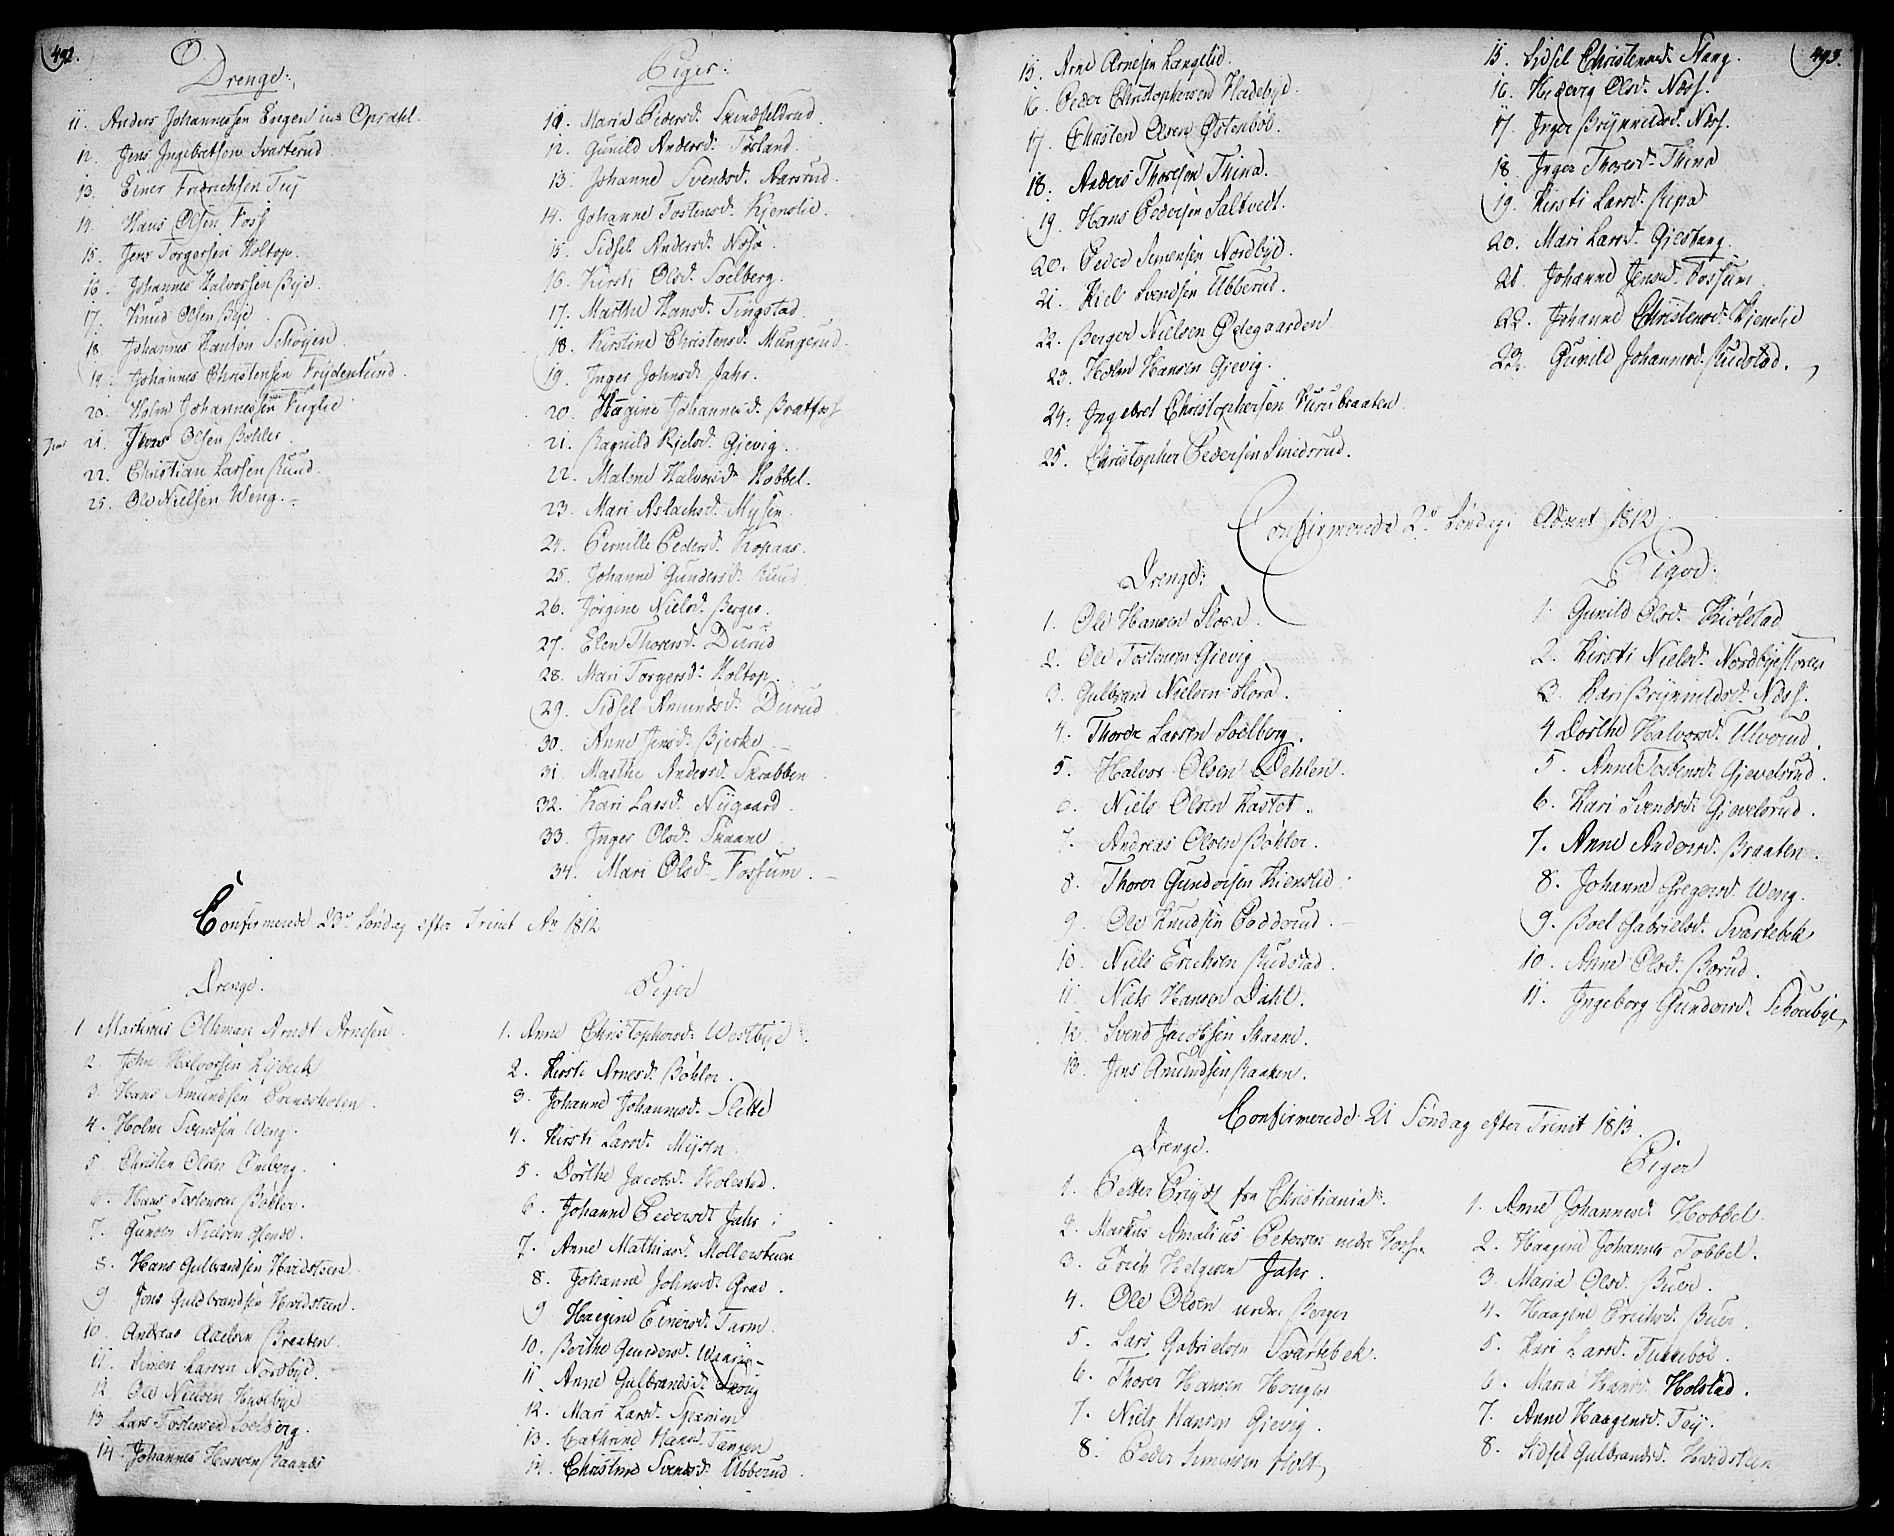 492.
Drenge:
11. Anders Johannessen Engen Opsahl.
12. Jens Ingebretsen Svarterud
13. Einer Fridrichsen Tej
14. Hans Olsen Foss
15. Jens Torgersen Holtop.
16. Johannes Halvorsen Bye.
17. Knud Olsen Bye
18. Johannes Hansen Schøyen
19. Johannes Christensen Frydenlund.
20. Holm Johannessen Fuglie
21. Jens Olsen Bøhler.
22. Christian Larsen Ruud.
25. Ole Nielsen Weng.
Piger:
11. Maria Pedersd. Skindfeldrud.
12. Gunild Andersd. Fosland.
13. Johanne Svendsd. Aarsrud.
14. Johanne Tostensd. Kjenslie.
15. Sidsel Andersd. Næsø.
16. Kirsti Olsd. Soelberg.
17. Marthe Hansd. Tingstad.
18. Kirstine Christensd. Mungerud.
19. Inger Johnsd. Jahr.
20. Hagine Johannesd. Bratfoss
21. Ragnild Kjelsd. Gjevig.
22. Malene Halvorsd. Hobbel.
23. Mari Aslachsd. Mysen.
24. Pernille Pedersd. Kopaas.
25. Johanne Gundersd. Ruud.
26. Jørgine Nielsd. Berger.
27. Elen Thorersd. Duūd
28. Mari Torgersd. Holtop.
29. Sidsel Amundsd. Durud
30. Anne Jensd. Bjerke.
31. Marthe Andersd. Skrabben
32. Kari Larsd. Nygaard.
33. Inger Olsd. Skaane
34. Mari Olsd. Fossum.
Confirmerede 23de Søndag efter Trinit Ao 1812
Drenge.
1. Martinus Oltman Arndt Arnesen.
2. John Halvorsen Lysbeck
3. Hans Amundsen Grendskolen.
4. Holm Svendsen Weng.
5. Christen Olsen Omberg.
6. Hans Tostensen Bøhler.
7. Gunder Nielsen Glende.
8. Hans Gulbrandsen Hvidsteen
9. Jens Guldbrandsen Hvidsteen.
10. Andreas Axelsen Braaten.
11. Simen Larsen Nordbye.
12. Ole Nielsen
13. Lars Tostensen Solberg.
14. Johannes Hansen Raande
Piger
1. Anne Christophersd. Westbye.
2. Kirsti Arnesd. Bøhler.
3. Johanne Johannesd. Slette
4. Kirsti Larsd. Mysen.
5. Dorthe Jacobsd. Holestad.
6. Johanne Pedersd. Jahr.
7. Anne Mathiasd. Mollerstuen
8. Johanne Johnsd. Grav.
9. Haagine Einersd. Tarm.
10. Berthe Gundersd. Waarin
11. Anne Gulbrandsd. Skoug
12. Mari Larsd.
13. Cathrine Hansd. Tangen
14. Christine Svendsd. Ubberud.
493.
15. Arne Arnesen Langelid.
16. Peder Christophersen Hedebye.
17. Christen Olsen Østenbøl.
18. Anders Thoresen Thina.
19. Hans Pedersen Saltvedt.
20. Peder Simensen Nordbye.
21. Kield Svendsen Ubberud.
22. Berger Nielsen Ødegaarden
23. Holm Hansen Gjevig.
24. Ingebret Christophersen Furubraaten.
25. Christopher Pedersen Smedsrud.
15. Sidsel Christensd. Stang.
16. Hedevig Olsd. Næss.
17. Inger Brynnildsd. Næss.
18. Inger Thoresd. Thina
19. Kirsti Larsd. Ripa
20. Mari Larsd. Gjestang.
21. Johanne Jensd. Fossum
22. Johanne Christensd. Kjenslie
23. Gunild Johannesd. Rudstad.
Confirmerede 2den Søndag i Advent 1812
Drenge:
1. Ole Hansen Slora.
2. Ole Tostensen Gjevig
3. Gulbrand Nielsen Slora.
4. Thorer Larsen Soelberg.
5. Halvor Olsen Dehlen.
6. Niels Olsen Kastet.
7. Andreas Olsen Bøhler.
8. Thorer Gundersen Kienslie.
9. Ole Knudsen Padderud.
10. Niels Erichsen Rudstad.
11. Niels Hansen Dahl.
12. Svend Jacobsen Skaane.
13. Jens Amundsen Raaken.
Piger.
1. Gunild Olsd. Kiølstad
2. Kirsti Nielsd. Nordbyestoren
3. Kari Brynnildsd. Næss.
4. Dorthe Halvorsd. Ulverud.
5. Anne Tostensd. Gjevelsrud.
6. Kari Svendsd. Gjevelsrud.
7. Anne Andersd. Braaten.
8. Johanne Gregersd. Weng.
9. Boel Gabrielsd. Svartebek
10. Anne Olsd. Borud.
11. Ingeborg Gundersd. Schoubye,
Confirmerede 21 Søndag efter Trinit 1813.
Drenge.
1. Petter Prydz fra Christiania.
2. Markus Amalius Petersen nedre Foss
3. Erich Helgesen Jahr.
4. Ole Olsen nedre Berger
5. Lars Gabrielsen Svartebek.
6. Thorer Hansen Hougen
7. Niels Hansen Gjevig.
8. Peder Simensen Holt,
Piger
1. Anne Johannesd. Hobbel.
2. Haagine Johannesd. Tobbel.
3. Maria Olsd. Buer.
4. Haagine Erichsd. Buer.
5. Kari Larsd. Tukkebøl.
6. Maria Hansd. Holstad.
7. Anne Haagensd. Tej.
8. Sidsel Gulbrandsd. Hvidsteen